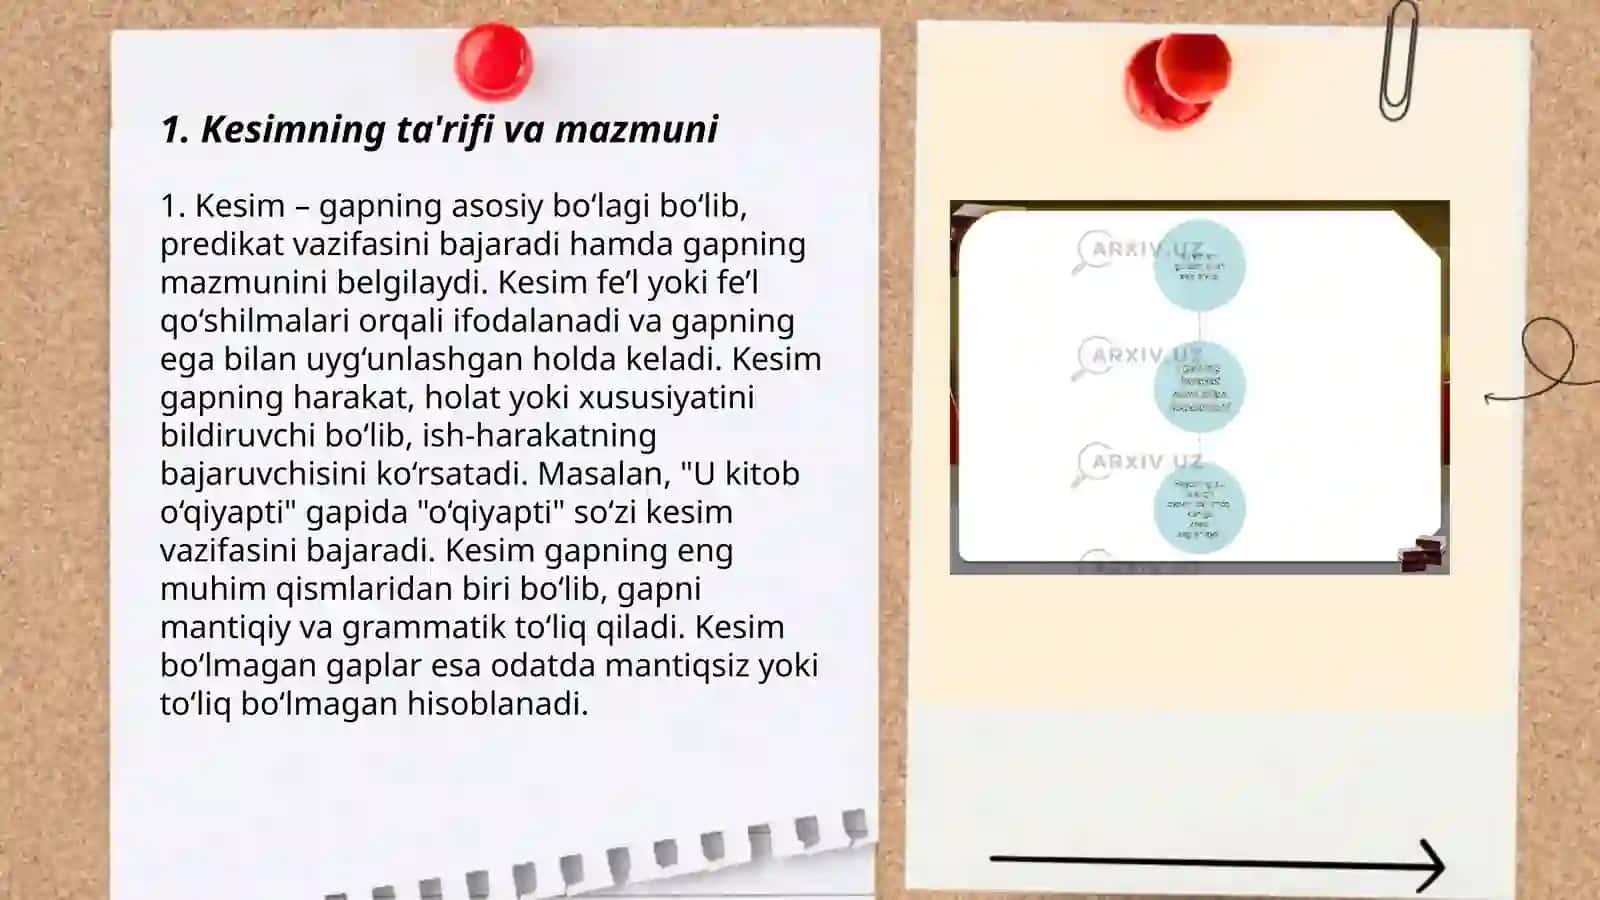 1. Kesimning ta'rifi va mazmuni
1. Kesim – gapning asosiy bo‘lagi bo‘lib,
predikat vazifasini bajaradi hamda gapning
mazmunini belgilaydi. Kesim fe’l yoki fe’l
qo‘shilmalari orqali ifodalanadi va gapning
ega bilan uyg‘unlashgan holda keladi. Kesim
gapning harakat, holat yoki xususiyatini
bildiruvchi bo‘lib, ish-harakatning
bajaruvchisini ko‘rsatadi. Masalan, "U kitob
o‘qiyapti" gapida "o‘qiyapti" so‘zi kesim
vazifasini bajaradi. Kesim gapning eng
muhim qismlaridan biri bo‘lib, gapni
mantiqiy va grammatik to‘liq qiladi. Kesim
bo‘lmagan gaplar esa odatda mantiqsiz yoki
to‘liq bo‘lmagan hisoblanadi.
ARXIV.UZ
ARXIV.UZ
ARXIV.UZ